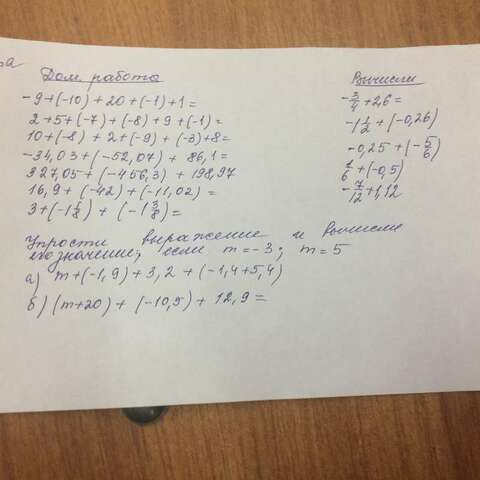 Дом. работа
-9+(-10)+20+(-1)+1=
2+5+(-7)+(-8)+9+(-1)=
10+(-8)+2+(-9)+(-3)+8=
-34,03+(-52,07)+86,1=
327,05+(-456,3)+198,97
16,9+(-42)+(-11,02)=
3+(-1 1/8)+(-1 3/8)=
Вычисли
-3/4+2,6=
-1 1/2+(-0,26)
-0,25+(-5/6)
1/6+(-0,5)
-7/12+1,12
Упрости выражение и вычисли
его значение, если m=-3; m=5
а) m+(-1,9)+3,2+(-1,4+5,4)
б) (m+20)+(-10,5)+12,9=